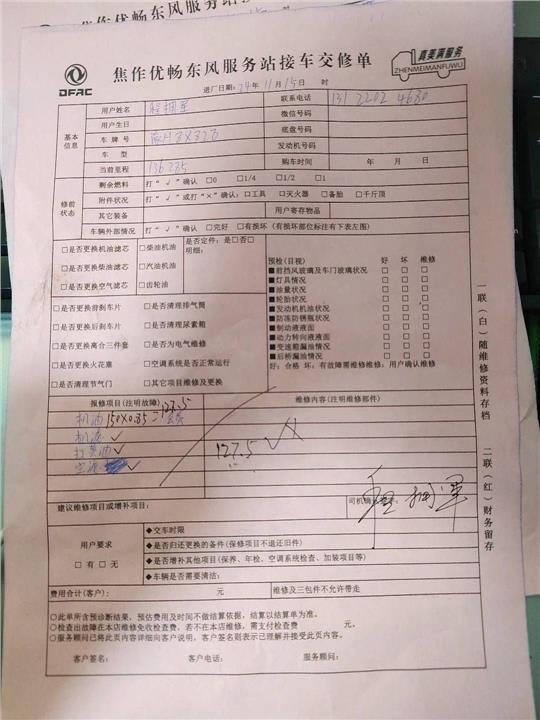 焦作优畅东风服务站接车交修单
DFAC
真美满服务
ZHENMEIMANFUWU
进厂日期：24年11月15日 时
基本信息
用户姓名
联系电话 131 2202 4680
用户生日
微信号码
车牌号
底盘号码
车型
发动机号码
当前里程 136285
购车时间 年 月 日
修前状态
剩余燃料 打“√”确认 □0 □1/4 □1/2 □1
附件状况 打“√”或打“×”确认：□工具 □灭火器 □备胎 □千斤顶
其它装备
用户寄存物品
车辆外部情况 打“√”确认 □完好 □有损坏（有损坏部位标注有下表左图）
□是否更换机油滤芯 □柴油机油
□是否更换柴油滤芯 □汽油机油
□是否更换空气滤芯 □齿轮油
是否定件：是□否□
明细：
□是否更换前刹车片 □是否清理排气筒
□是否更换后刹车片 □是否清理尿素箱
□是否更换离合三件套 □是否为电气维修
□是否更换火花塞 □空调系统是否正常运行
□是否清理节气门 □其它项目维修及更换
预检(目视) 好 坏 维修
■前挡风玻璃及车门玻璃状况 □ □ □
■灯具情况 □ □ □
■油量状况 □ □ □
■轮胎状况 □ □ □
■发动机机油状况 □ □ □
■防冻防锈瓶状况 □ □ □
■制动液液面 □ □ □
■动力转向液液面 □ □ □
■变速箱漏油情况 □ □ □
■后桥漏油情况 □ □ □
好：合格 坏：有故障需维修维修：用户确认维修
报修项目(注明故障)
维修内容(注明维修部件)
机油 150×0.85=127.5
机滤 √
打黄油 √
空滤 √
127.5 √
建议维修项目或增补项目：
司机确认签字：
用户要求
□有 □无
◆交车时限
◆是否归还更换的备件(保修项目不退还旧件)
◆是否增补其他项目(保养、年检、空调系统检查、加装项目等)
◆车辆是否需要清洁：
费用合计(客户)： 元
维修及三包件不允许带走
○此单所含预诊断结果，预估费用及时间不做结算依据，结算以结算单为准。
○检查出故障在本店维修免收检查费，若不在本店维修，需支付检查费 元。
○服务顾问已将此页内容详细向客户说明，客户签名则表示已理解并接受此页内容。
客户签名： 客户电话： 服务顾问：
一联（白）随维修资料存档
二联（红）财务留存